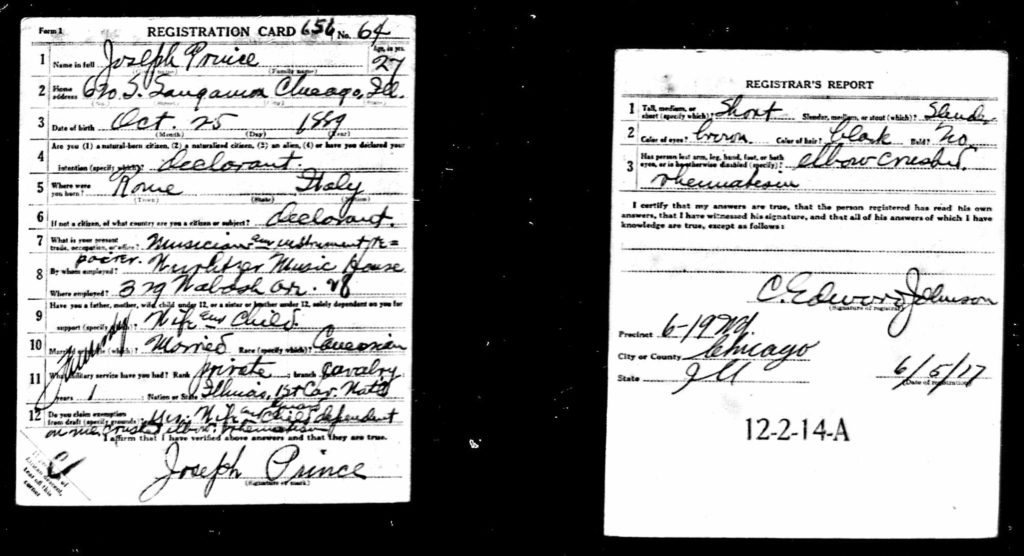 Form 1 REGISTRATION CARD 656 No. 64
1 Name in full Joseph Prince Age, in yrs. 27
(Given name) (Family name)
2 Home address S. Sangamon Chicago, Ill.
3 Date of birth Oct. 25 1889
(Month) (Day) (Year)
Are you (1) a natural-born citizen, (2) a naturalized citizen, (3) an alien, (4) or have you declared your
4 intention (specify which)? declorant.
5 Where were you born? Rome Italy
(Town) (State) (Nation)
6 If not a citizen, of what country are you a citizen or subject? declorant.
7 What is your present trade, occupation, or office? Musician and instrument re=
8 By whom employed? Wurlitzer Music House
Where employed? 329 Wabash av.
Have you a father, mother, wife, child under 12, or a sister or brother under 12, solely dependent on you for
9 support (specify which)? Wife and Child.
10 Married or single (which)? Married Race (specify which)? Caucasian
11 What military service have you had? Rank private ; branch Cavalry
years 1 Nation or State Illinois, 1st Cav.
12 Do you claim exemption from draft (specify grounds)? Yes. Wife and Child dependent
on me, elbow. rheumatism
I affirm that I have verified above answers and that they are true.
Joseph Prince
(Signature or mark)
REGISTRAR'S REPORT
1 Tall, medium, or short (specify which)? Short Slender, medium, or stout (which)? Slender
2 Color of eyes? brown Color of hair? black Bald? No.
Has person lost arm, leg, hand, foot, or both
3 eyes, or is he otherwise disabled (specify)? elbow crushed,
rheumatism
I certify that my answers are true, that the person registered has read his own
answers, that I have witnessed his signature, and that all of his answers of which I have
knowledge are true, except as follows:
C. Edward Johnson
(Signature of registrar)
Precinct 6-19 Wd.
City or County Chicago
State Ill 6/5/17
(Date of registration)
12-2-14-A